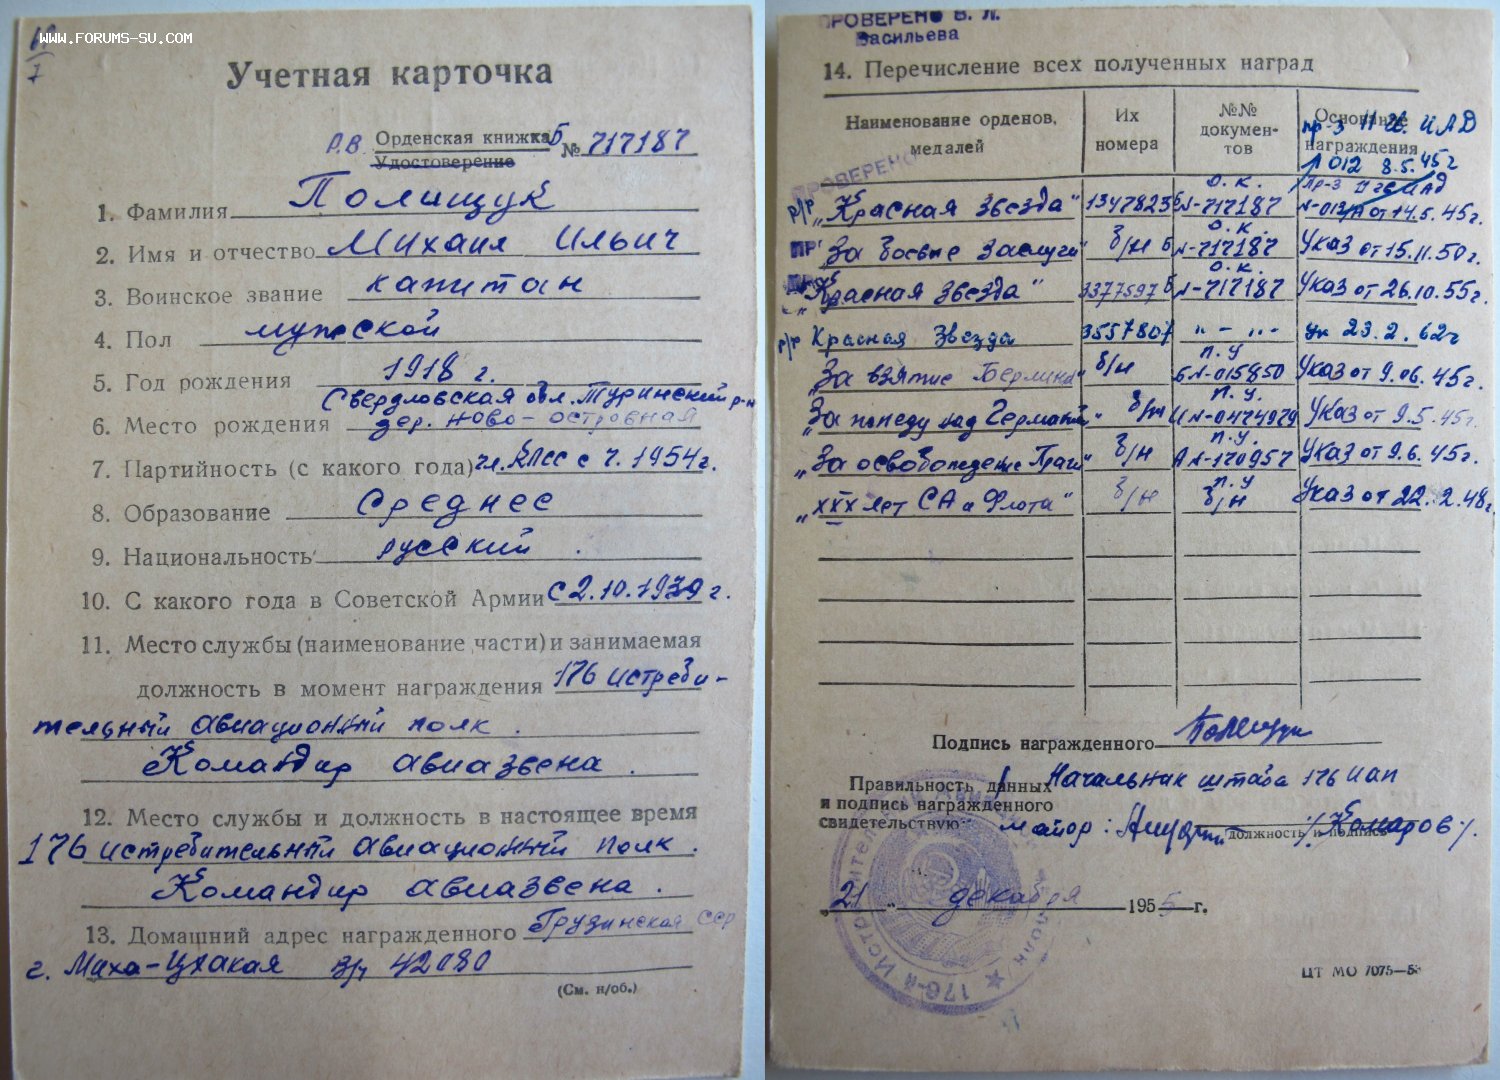 WWW.FORUMS-SU.COM
Учетная карточка
Орденская книжка Б № 717187
Удостоверение
1. Фамилия Полищук
2. Имя и отчество Михаил Ильич
3. Воинское звание капитан
4. Пол мужской
5. Год рождения 1918 г.
Свердловская обл. Туринский р-н
6. Место рождения дер. Ново-островная
7. Партийность (с какого года) чл. КПСС с г. 1954 г.
8. Образование Среднее
9. Национальность русский
10. С какого года в Советской Армии с 2.10.1939 г.
11. Место службы (наименование части) и занимаемая
должность в момент награждения 176 истреби-
тельный авиационный полк.
Командир авиазвена.
12. Место службы и должность в настоящее время
176 истребительный авиационный полк.
Командир авиазвена.
13. Домашний адрес награжденного Грузинская ССР
г. Миха-Цхакая в/ч 42080
(См. н/об.)
ПРОВЕРЕНО В. Л.
Васильева
14. Перечисление всех полученных наград
Наименование орденов, медалей Их номера №№ документов Основание награждения
пр-з 11 Гв. ИАД
012 8.5.45г
ПРОВЕРЕНО
о.к. Пр-з 11 Гв ИАД
р/р „Красная Звезда" 1347823 Б N-717187 N-013/А от 14.5.45г.
о.к.
„За боевые заслуги" б/н Б N-717187 Указ от 15.11.50г.
о.к.
„Красная Звезда" 3377597 Б N-717187 Указ от 26.10.55г.
р/р Красная Звезда 3557807 „ – „ ук 23.2.62г
п.у
„За взятие Берлина" б/н БN-015850 Указ от 9.06.45г.
п.у.
„За победу над Германией" б/н ЦN-0474979 Указ от 9.5.45г
п.у.
„За освобождение Праги" б/н АN-170957 Указ от 9.6.45г.
п.у
„XXX лет СА и Флота" б/н б/н Указ от 22.2.48г.
Подпись награжденного Полищук
Правильность данных и подпись награжденного свидетельствую:
Начальник штаба 176 ИАП
майор: /Комаров/.
должность и подпись
„21" декабря 1955 г.
ЦТ МО 7075—5
176-й Истребительный Авиационный полк